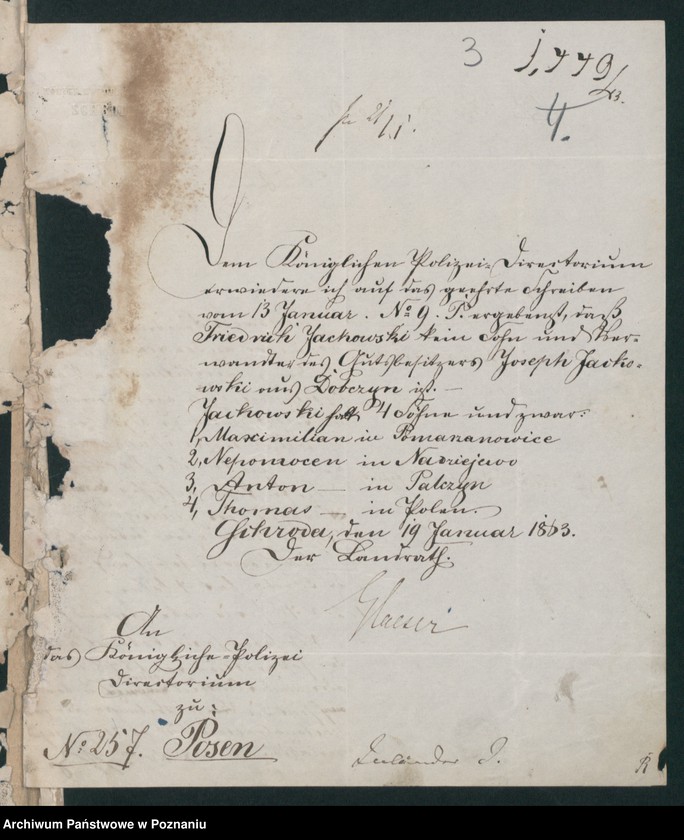 3
1,449/63.
4.
Dem Königlichen Polizei-Directorium
erwiedere ich auf das geehrte Schreiben
vom 13 Januar. No 9. P. ergebenst, daß
Friedrich Jackowski kein Sohn und Ver-
wandter des Gutsbesitzers Joseph Jacko-
wski aus Dobczyn ist. —
Jackowski hatt 4 Söhne und zwar:
1, Maximilian in Pomarzanowice
2, Nepomocen in Nadziejewo
3, Anton — in Palczyn
4, Thomas — in Polen.
Schroda, den 19 Januar 1863.
Der Landrath.
An
das Königliche-Polizei
Directorium
zu:
No 257. Posen
R
Archiwum Państwowe w Poznaniu